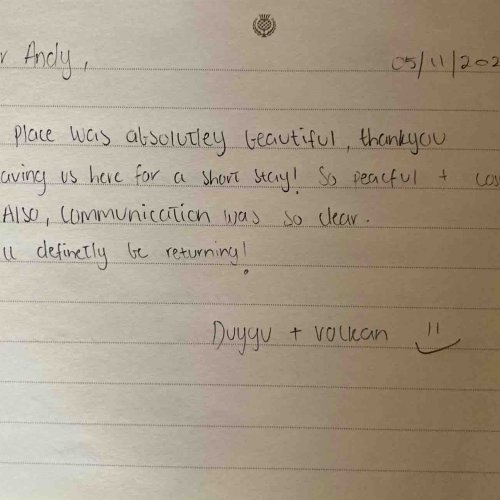 r Andy,
05/11/202
Place was absolutley beautiful, thankyou
aving us here for a short stay! So peacful + cos
Also, communication was so clear.
ll definetly be returning!
Duygu + Volkan